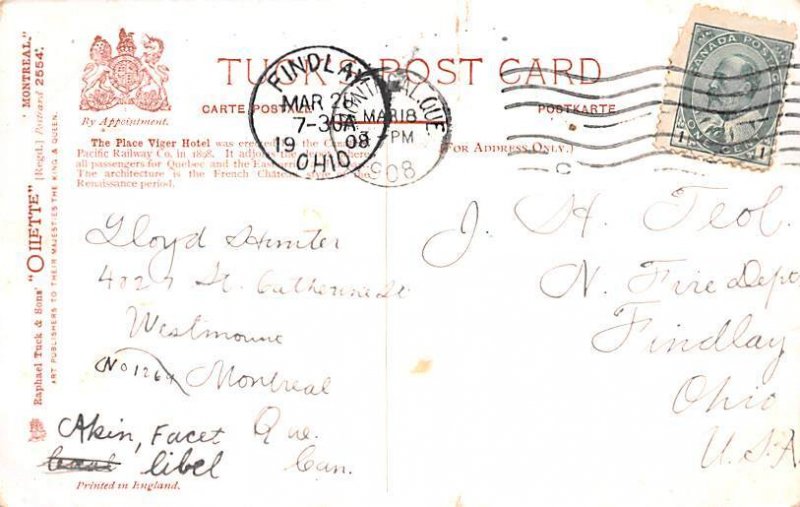 TUCK'S POST CARD
CARTE POSTALE POSTKARTE
By Appointment.
(FOR ADDRESS ONLY.)
The Place Viger Hotel was erected by the Can
Pacific Railway Co. in 1898. It adjo
all passengers for Quebec and the Eas
The architecture is the French Château style of the
Renaissance period.
Raphael Tuck & Sons' "OILETTE" [Regd.] Postcard 2554. "MONTREAL."
ART PUBLISHERS TO THEIR MAJESTIES THE KING & QUEEN.
FINDLAY
MAR 20
7-30A
19 08
OHIO
MONTREAL, QUE
MAR 18
PM
1908
CANADA POSTAGE
1 1
ONE CENT
Lloyd Hunter
4027 St. Catherine St
Westmount
No 1264 Montreal
Que.
Can.
Akin, Facet
libel
J. H. Teol.
N. Fire Dept
Findlay
Ohio
U.S.A.
Printed in England.